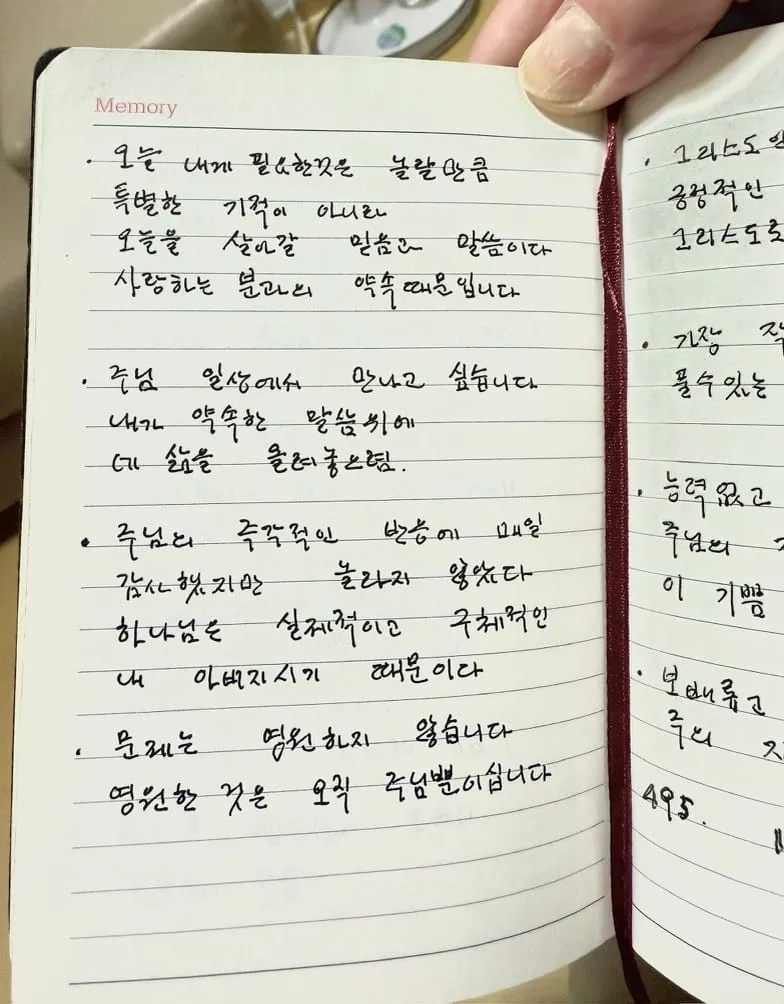 Memory
· 오늘 내게 필요한것은 놀랄만큼
특별한 기적이 아니라
오늘을 살아갈 믿음과 말씀이다
사랑하는 분과의 약속때문입니다
· 주님 일상에서 만나고 싶습니다
내가 약속한 말씀위에
네 삶을 올려놓으렴.
· 주님의 즉각적인 반응에 매일
감사했지만 놀라지 않았다
하나님은 실제적이고 구체적인
내 아버지시기 때문이다
· 문제는 영원하지 않습니다
영원한 것은 오직 주님뿐이십니다
· 그리스도인
긍정적인
그리스도로
· 가장
풀수있는
· 능력없고
주님의
이 기쁨
· 보배롭고
주의
495.